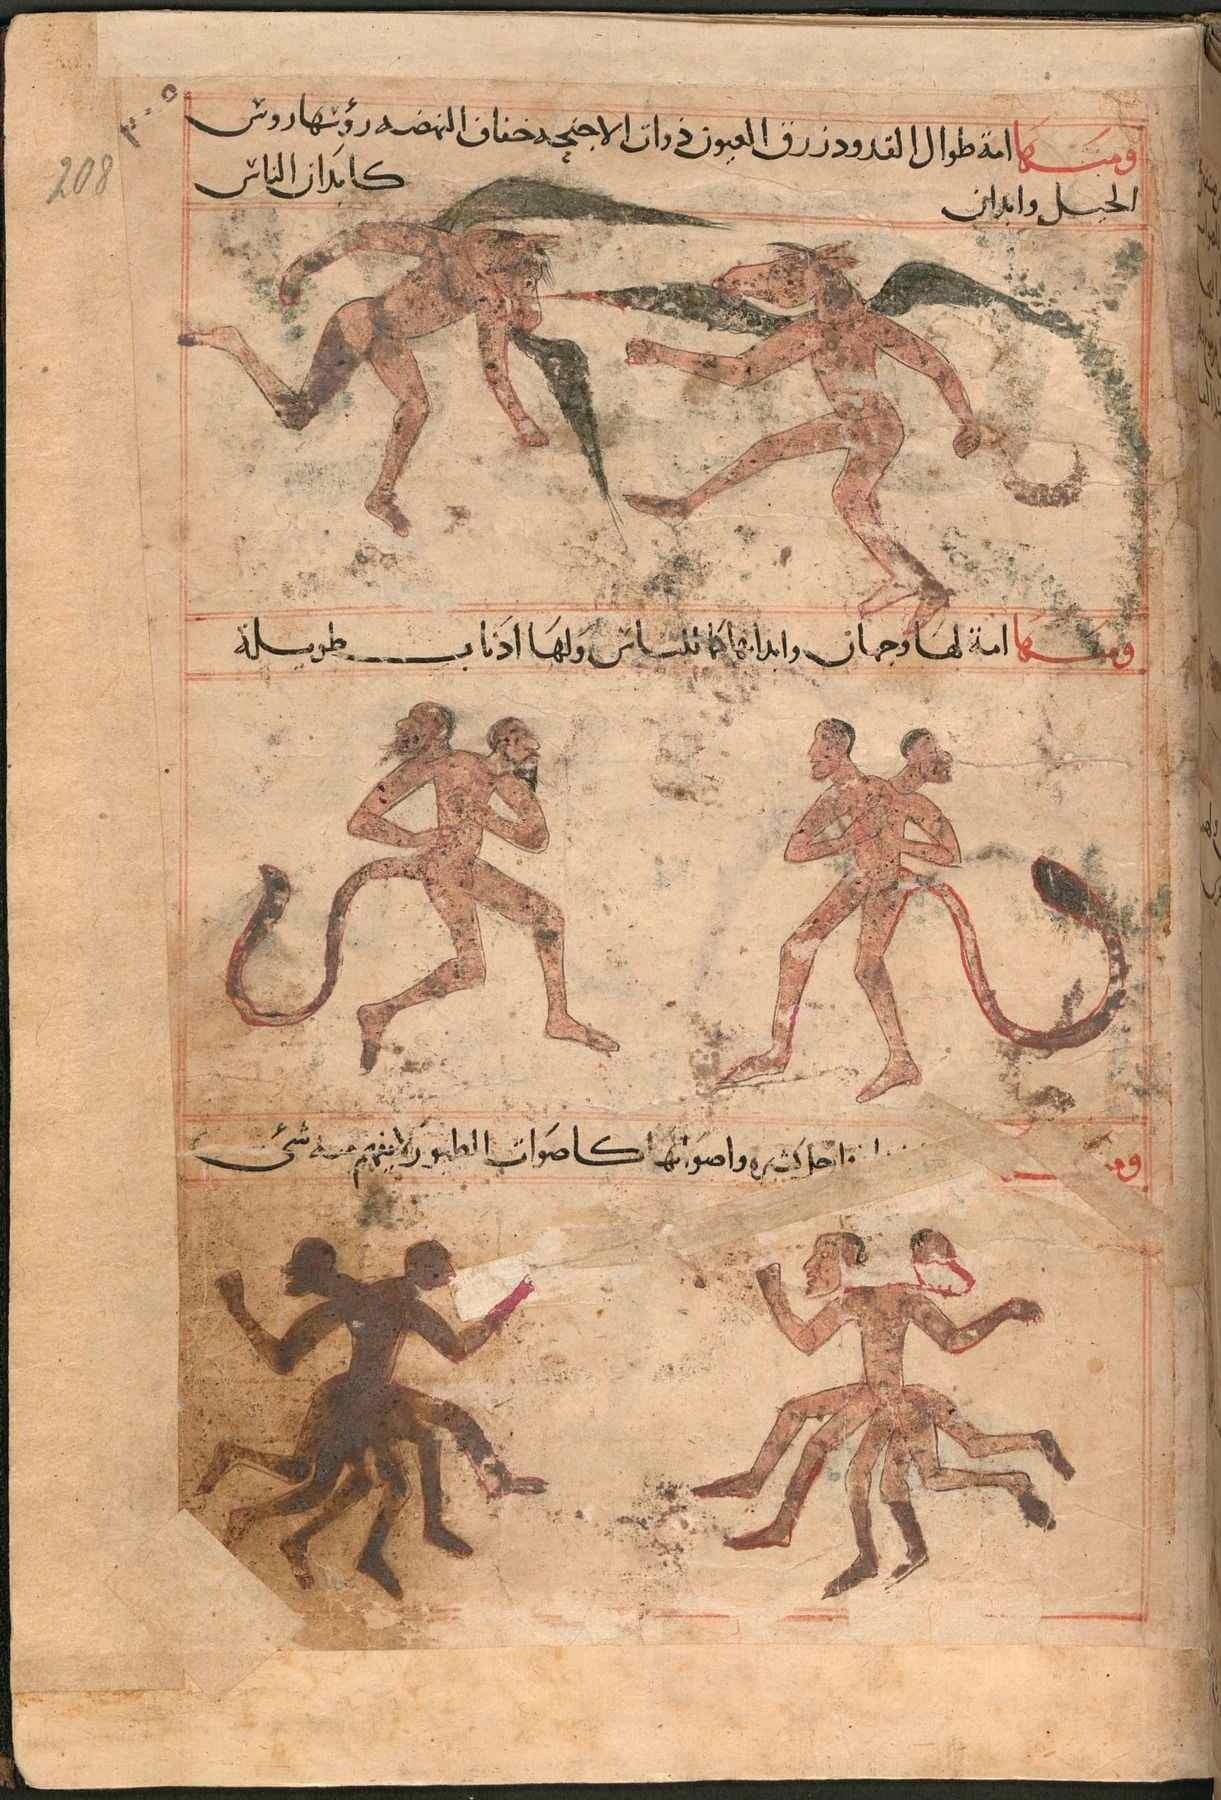 ٣٠٥
208
ومنها امة طوال القدود زرق العيون ذوات الاجنحة خفاف النهضه رؤسها روس
الخيل وابدان كابدان الناس
ومنها امة لها وجهان وابدانها كالناس ولها اذناب طويلة
ارجل كثيره واصواتها كاصوات الطيور لا يفهم منه شئ